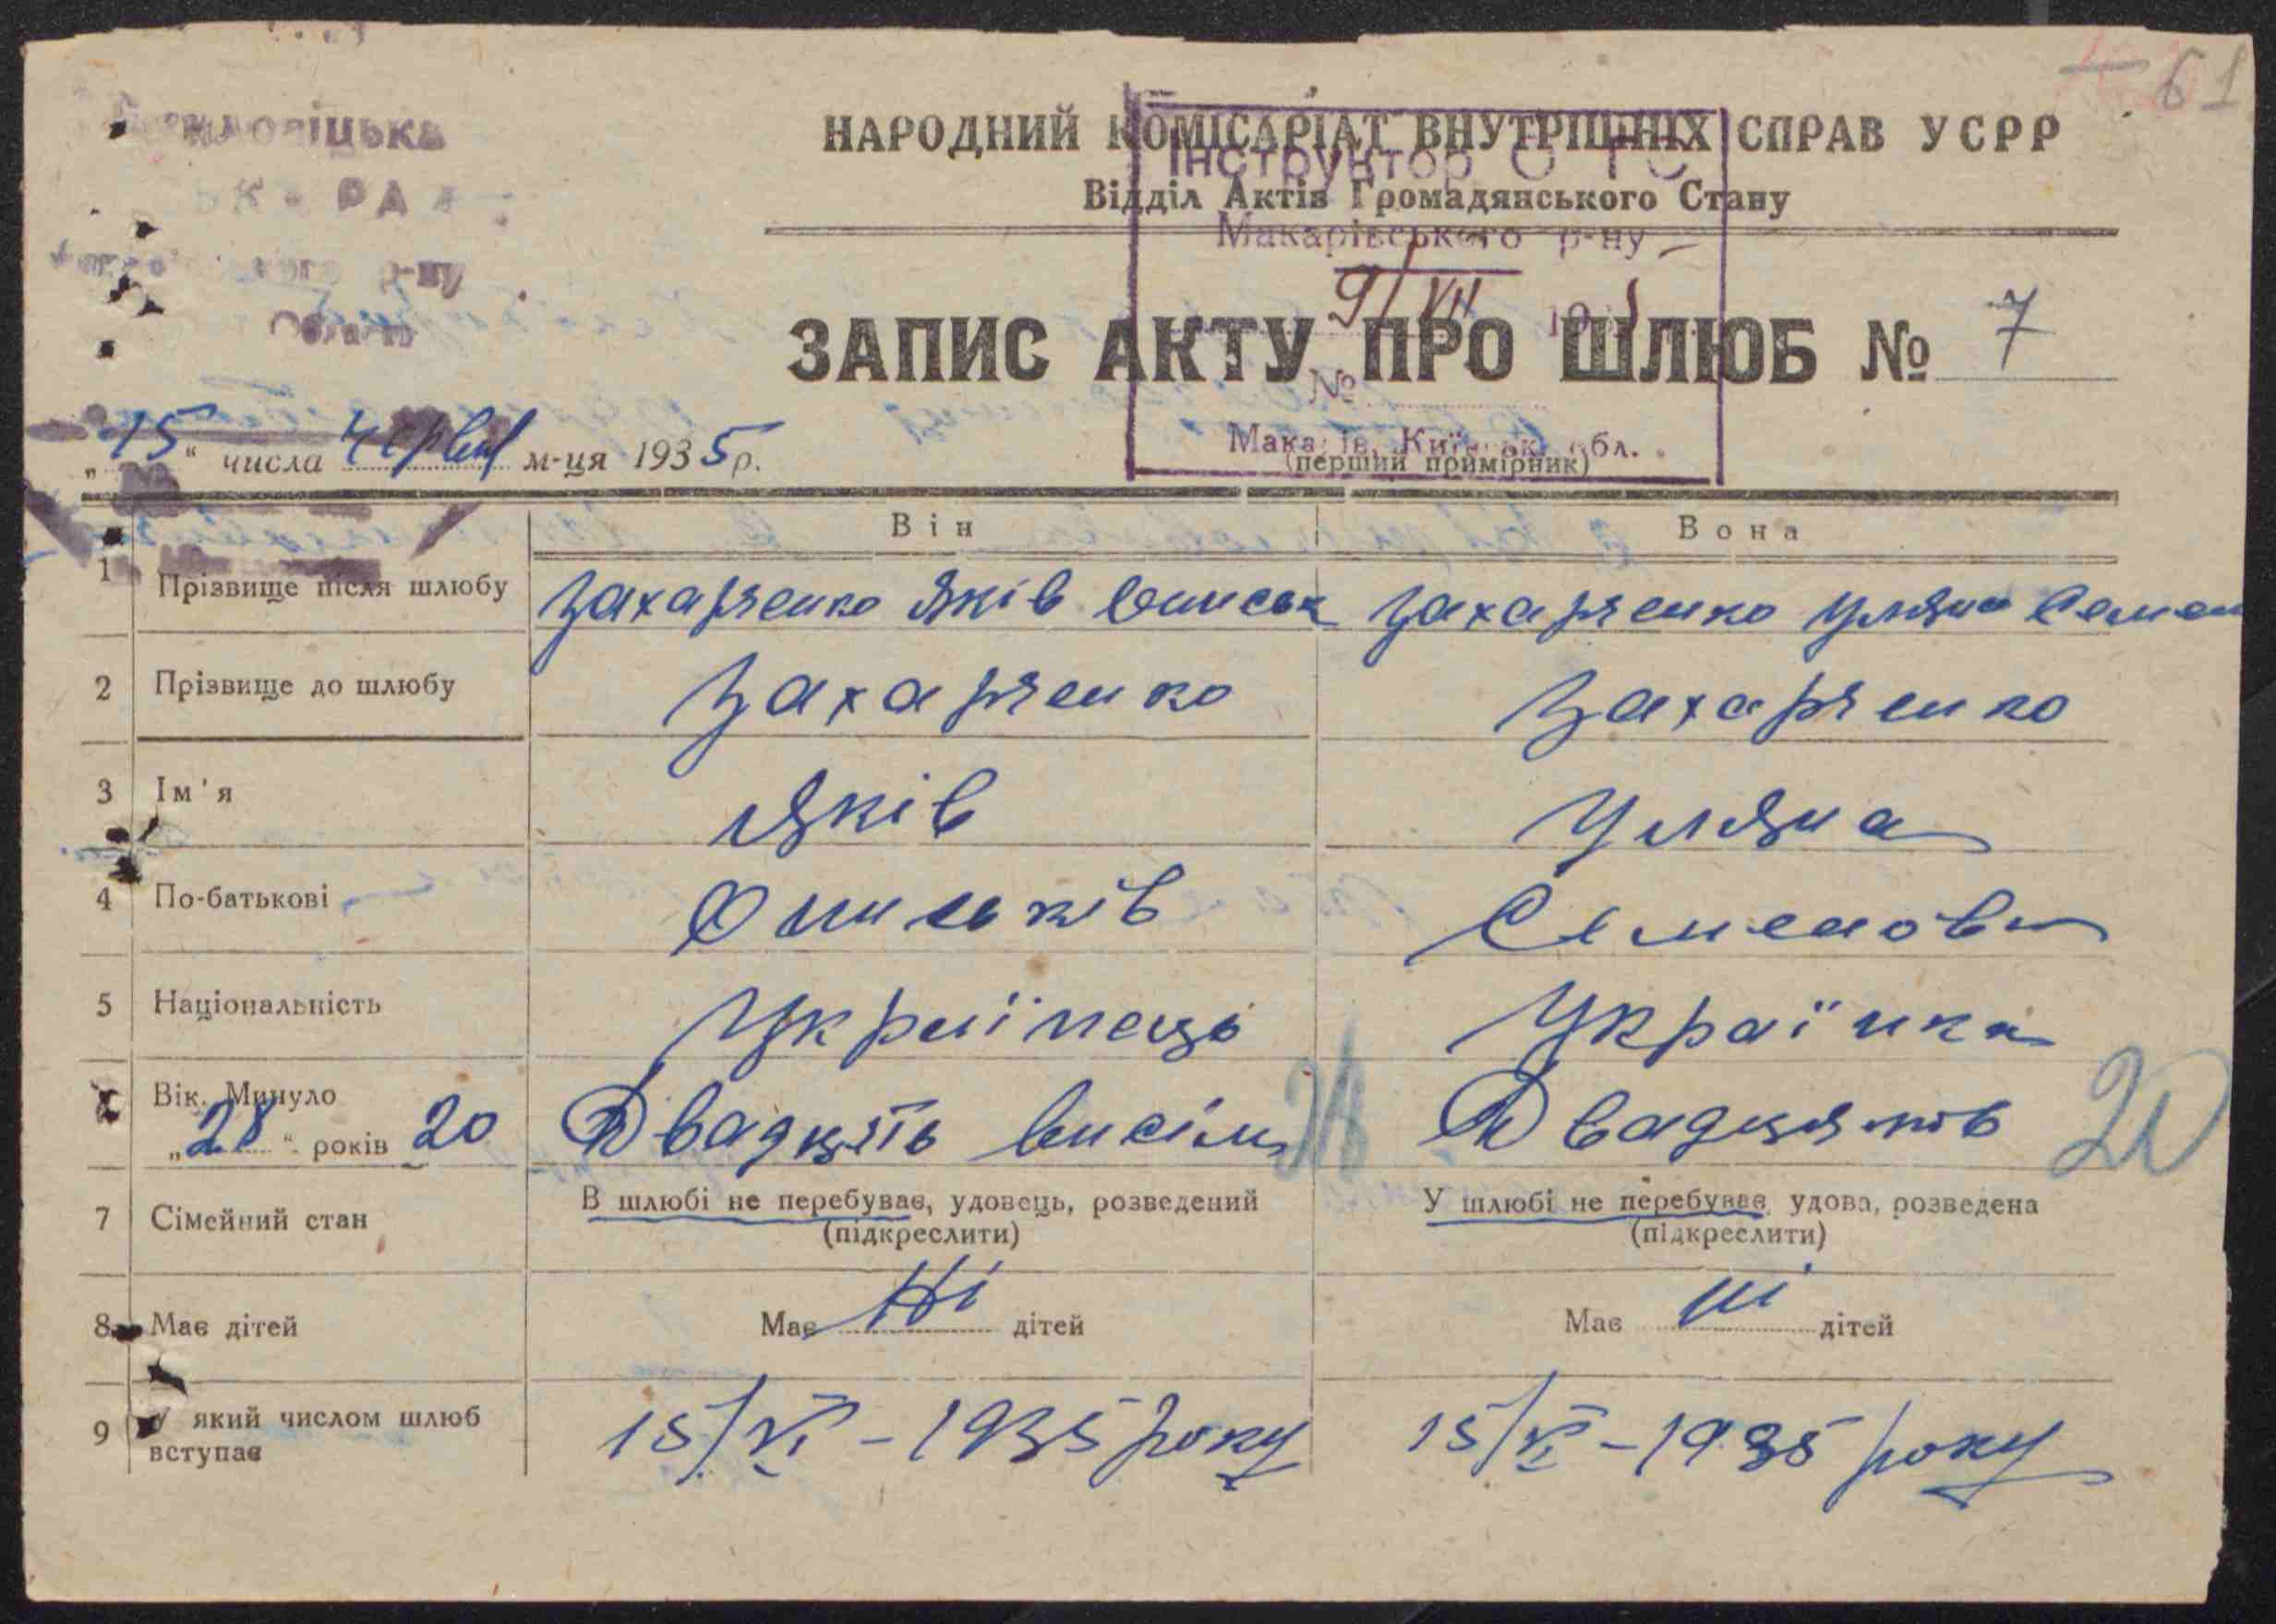 61
НАРОДНИЙ КОМІСАРІАТ ВНУТРІШНІХ СПРАВ УСРР
Інструктор
Відділ Актів Громадянського Стану
Макарівського р-ну
р-ну
9/VII
ЗАПИС АКТУ ПРО ШЛЮБ № 7
№
"15" числа червня м-ця 1935 р.
Макарів, Київськ обл.
(перший примірник)
Він Вона
1 Прізвище після шлюбу Захарченко Яків Захарченко Уляна Семен
2 Прізвище до шлюбу Захарченко Захарченко
3 Ім'я Яків Уляна
4 По-батькові Семеновн
5 Національність Українець Українка
Вік. Минуло
"28" років 20 Двадцять висім 28 Двадцять 20
7 Сімейний стан В шлюбі не перебуває, удовець, розведений У шлюбі не перебуває, удова, розведена
(підкреслити) (підкреслити)
8 Має дітей Має Ні дітей Має ні дітей
9 У який числом шлюб вступає 15/VI - 1935 року 15/VI - 1935 року